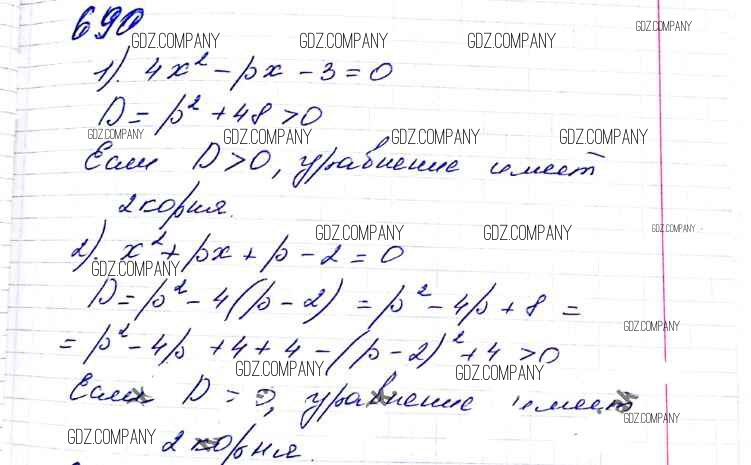 690
GDZ.COMPANY
GDZ.COMPANY GDZ.COMPANY GDZ.COMPANY
1). 4x² - px - 3 = 0
D = p² + 48 > 0
GDZ.COMPANY GDZ.COMPANY GDZ.COMPANY GDZ.COMPANY
Если D > 0, уравнение имеет
2 корня.
GDZ.COMPANY GDZ.COMPANY GDZ.COMPANY
2). x² + px + p - 2 = 0
GDZ.COMPANY
D = p² - 4(p - 2) = p² - 4p + 8 =
GDZ.COMPANY
= p² - 4p + 4 + 4 - (p - 2)² + 4 > 0
GDZ.COMPANY GDZ.COMPANY
Если D = 0, уравнение имеет
GDZ.COMPANY
GDZ.COMPANY
2 корня.